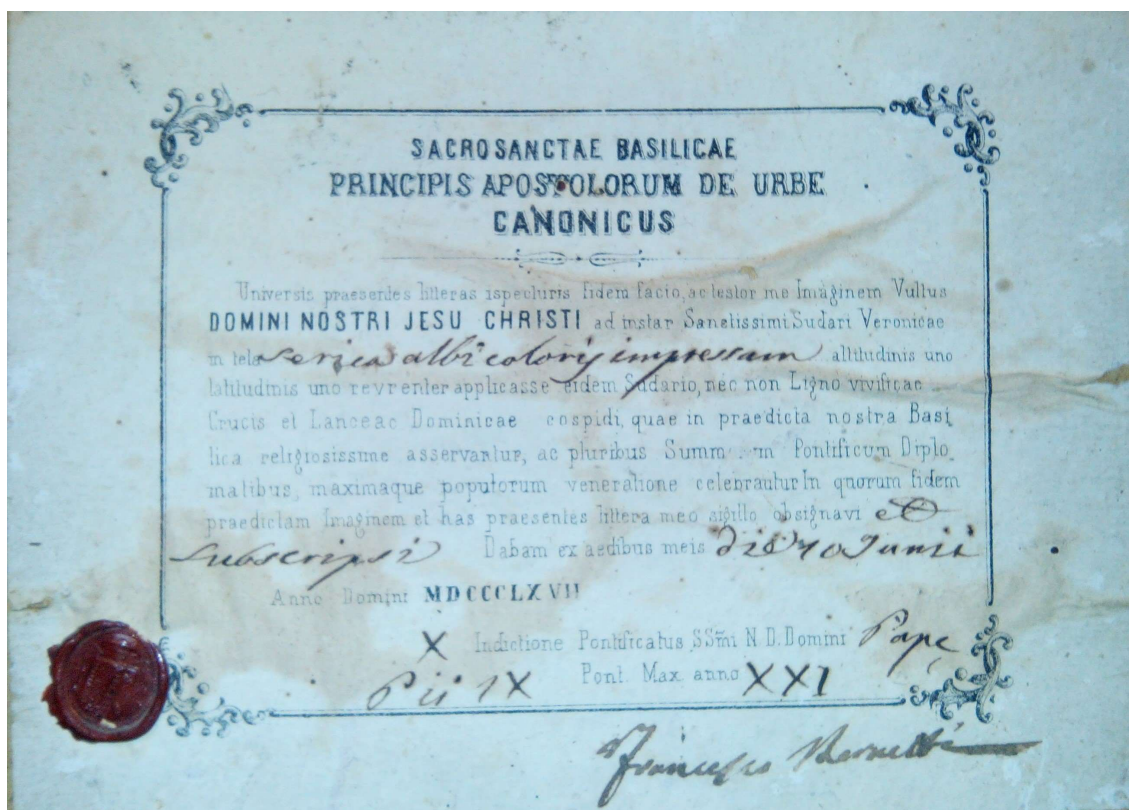 SACROSANCTAE BASILICAE
PRINCIPIS APOSTOLORUM DE URBE
CANONICUS
Universis praesentes litteras ispecturis fidem facio, ac testor me Imaginem Vultus
DOMINI NOSTRI JESU CHRISTI ad instar Sanctissimi Sudari Veronicae
in tela serica albi coloris impressam altitudinis uno
latitudinis uno revrenter applicasse eidem Sudario, nec non Ligno vivificae
Crucis et Lanceae Dominicae cospidi, quae in praedicta nostra Basi
lica religiosissime asservantur, ac pluribus Pontificum Diplo
matibus, maximaque populorum veneratione celebrautur In quorum fidem
praedictam Imaginem et has praesentes littera meo sigillo obsignavi et
subscripsi Dabam ex aedibus meis die Junii
Anno Domini MDCCCLXVII
X Indictione Pontificatus SSmi N. D. Domini Pape
Pii IX Pont. Max. anno XXI
Francesco